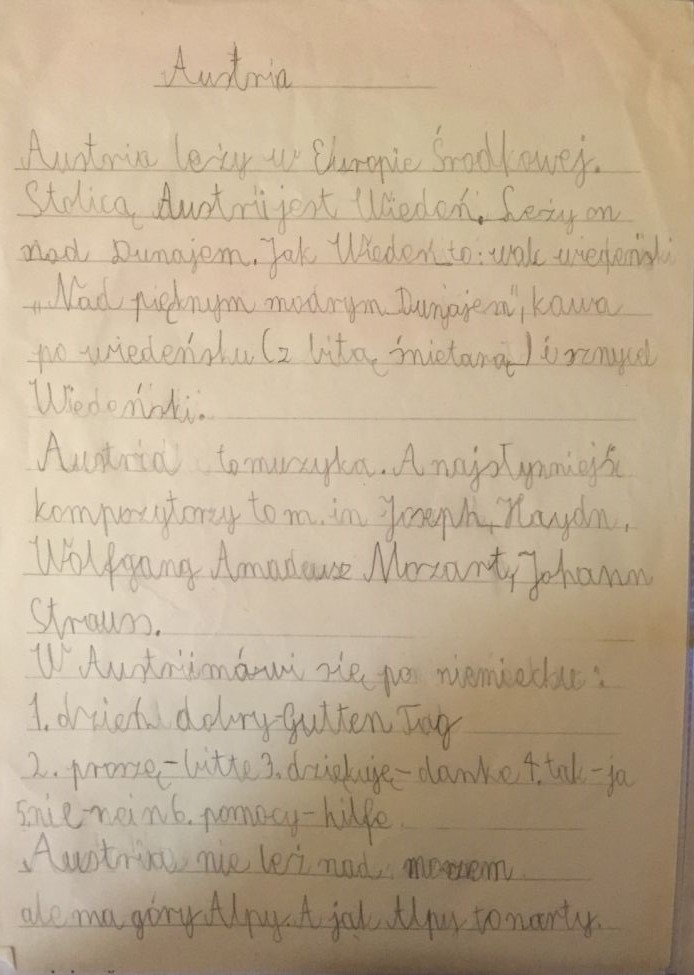 Austria
Austria leży w Europie Środkowej.
Stolicą Austrii jest Wiedeń. Leży on
nad Dunajem. Jak Wiedeń to: walc wiedeński
„Nad pięknym modrym Dunajem", kawa
po wiedeńsku (z bitą śmietaną) i sznycel
Wiedeński.
Austria to muzyka. A najsłynniejsi
kompozytorzy to m. in Joseph, Haydn,
Wolfgang Amadeusz Mozart, Johann
Strauss.
W Austrii mówi się po niemiecku:
1. dzień dobry-Gutten Tag
2. proszę-bitte 3. dziękuję-danke 4. tak-ja
5. nie-nein 6. pomocy-hilfe
Austria nie leż nad morzem
ale ma góry Alpy. A jak Alpy to narty.